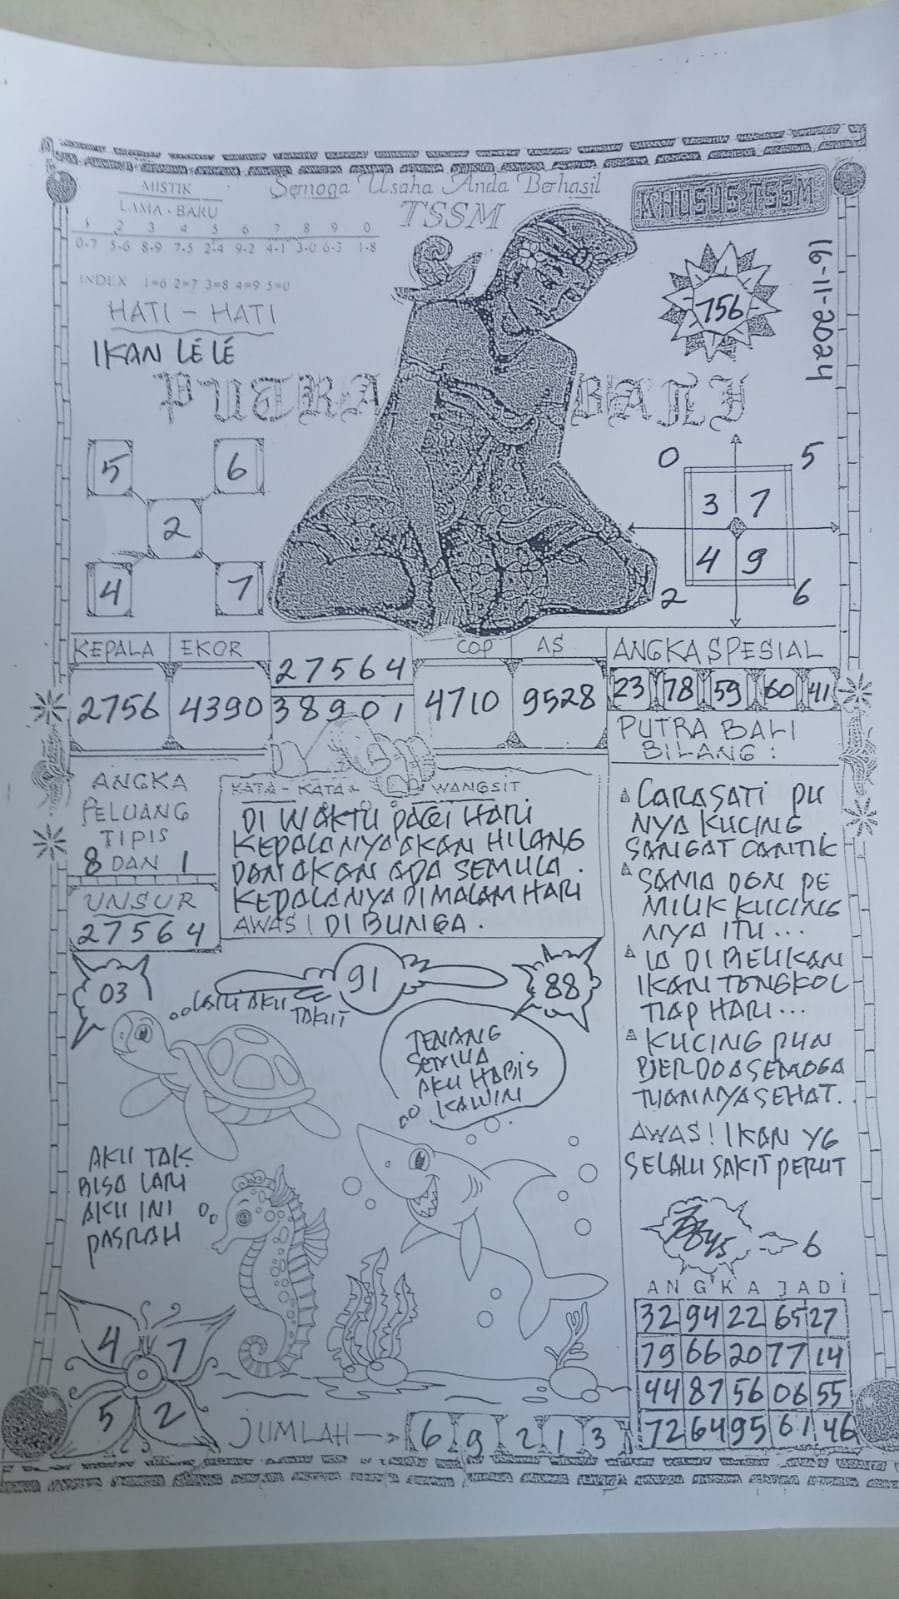 MISTIK
LAMA - BARU
1 2 3 4 5 6 7 8 9 0
0-7 5-6 8-9 7-5 2-4 9-2 4-1 3-0 6-3 1-8
INDEX 1=6 2=7 3=8 4=9 5=0
HATI - HATI
IKAN LÉLÉ
Semoga Usaha Anda Berhasil
TSSM
KHUSUS TSSM
756
16-11-2024
PUTRA BALI
5 6
2
4 7
0 5
3 7
4 9
2 6
KEPALA EKOR
2756 4390
27564
38901
COP AS
4710 9528
ANGKA SPESIAL
23 78 59 60 41
ANGKA
PELUANG
TIPIS
8 DAN 1
UNSUR
27564
KATA - KATA WANGSIT
DI WAKTU PAGI HARI
KEPALANYA AKAN HILANG
DAN AKAN ADA SEMULA.
KEPALANYA DI MALAM HARI
AWAS! DI BUNGA.
PUTRA BALI
BILANG:
CARASATI PU
NYA KUCING
SANGAT CANTIK
SAMA DGN PE
MILIK KUCING
NYA ITU...
IA DI BELIKAN
IKAN TONGKOL
TIAP HARI...
KUCING PUN
BERDOA SEMOGA
TUANNYA SEHAT.
AWAS! IKAN YG
SELALU SAKIT PERUT
03
91
88
LARI AKU
TAKUT
TENANG
SEMUA
AKU HABIS
KAWIN
AKU TAK
BISA LARI
AKU INI
PASRAH
6
4 7
5 2
JUMLAH 6 9 2 1 3
ANGKA JADI
32 94 22 65 27
79 66 20 77 14
44 87 56 06 55
72 64 95 61 46